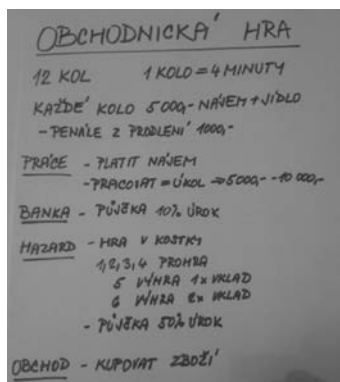 OBCHODNICKÁ HRA
12 KOL 1 KOLO = 4 MINUTY
KAŽDÉ KOLO 5000,- NÁJEM + JÍDLO
- PENÁLE Z PRODLENÍ 1000,-
PRÁCE - PLATIT NÁJEM
- PRACOVAT = ÚKOL → 5000,- - 10 000,-
BANKA - PŮJČKA 10% ÚROK
HAZARD - HRA V KOSTKY
1,2,3,4 PROHRA
5 VÝHRA 1x VKLAD
6 VÝHRA 2x VKLAD
- PŮJČKA 50% ÚROK
OBCHOD - KUPOVAT ZBOŽÍ